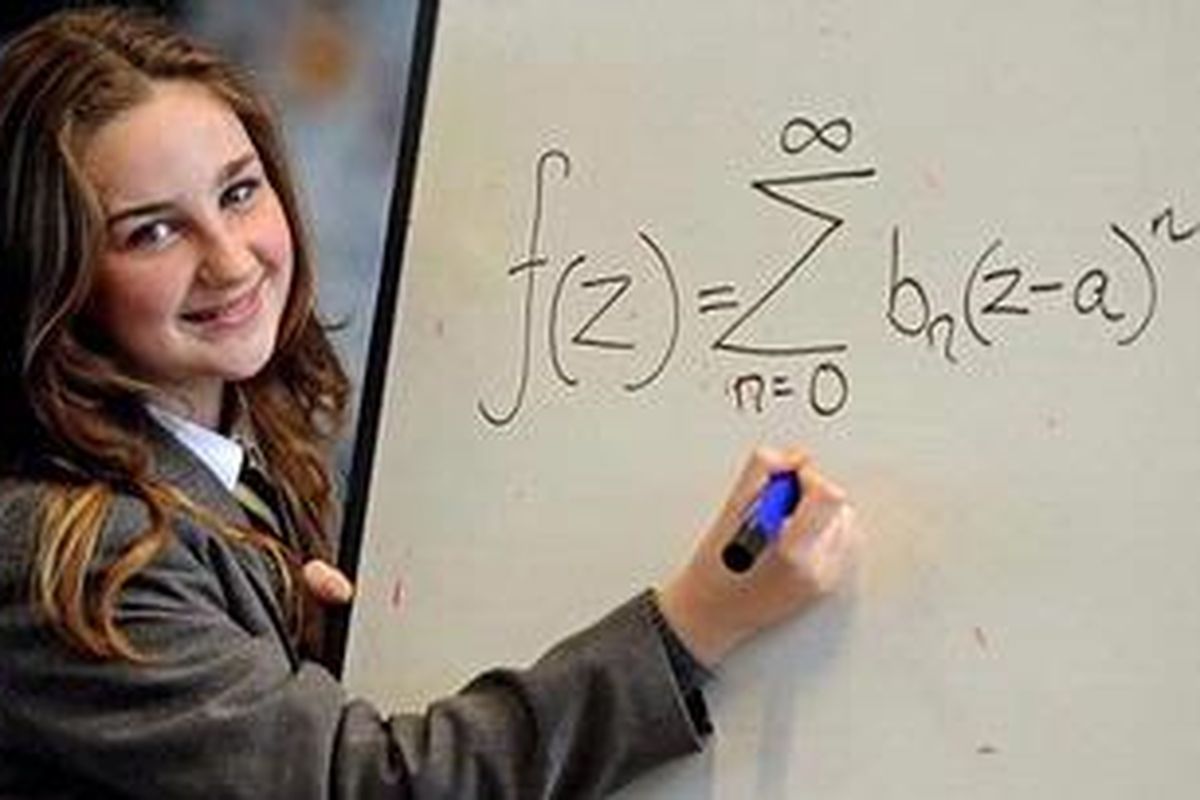 f(z) = ∞ Σ n=0 bn(z-a)^n